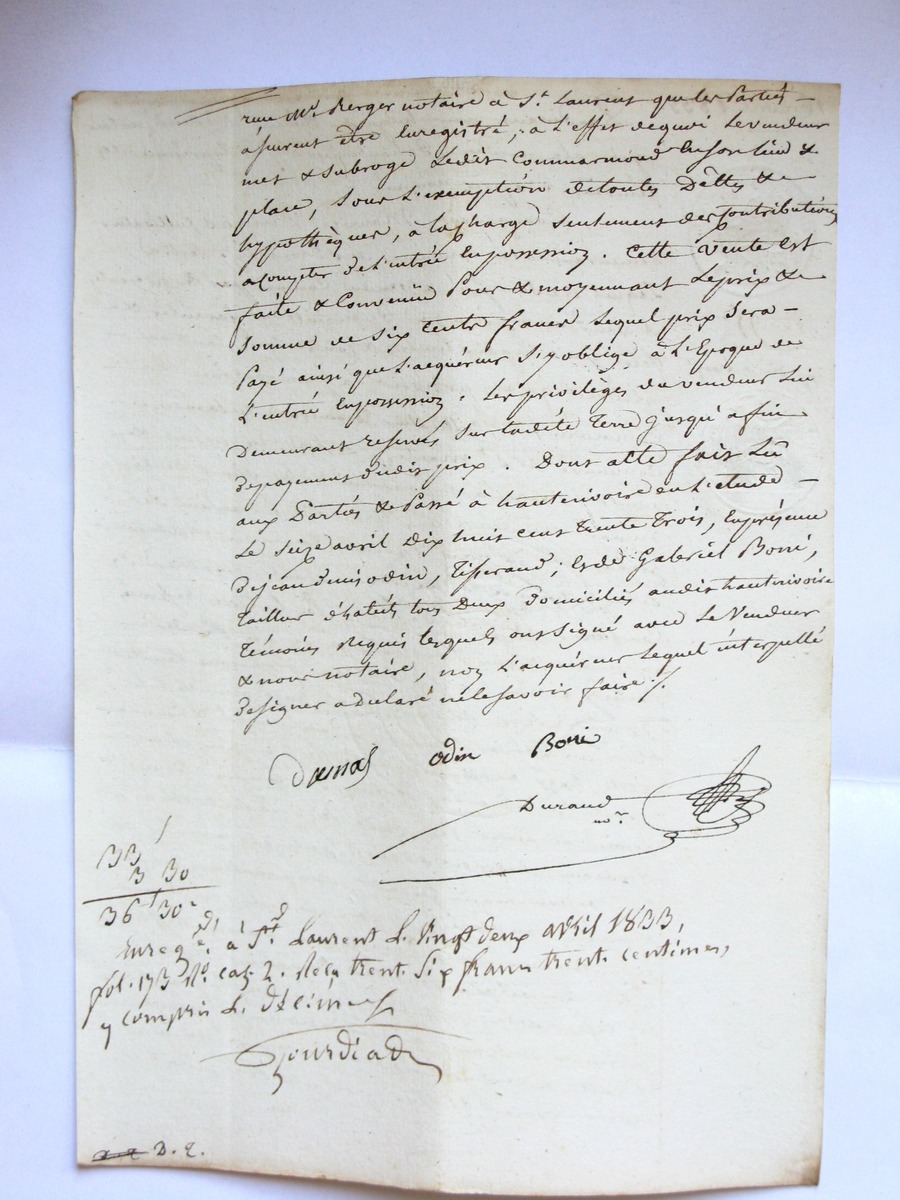 reçu Me Berger notaire à St. Laurent que les Parties
assurent être Enregistré, à L'effet dequoi Levendeur
met & subroge Ledit Commarmond En son lieu &
place, sous L'exemption detoutes Dettes &
hypothèques, à la charge seulement des Contributions
acompter de L'entrée Enpossession. Cette vente Est
faite & Convenüe Pour & moyennant Leprix &
somme de six Cents francs Lequel prix sera
Payé ainsi que L'acquéreur s'y oblige à L'Epoque de
L'entrée Enpossession. Les privilèges du vendeur Lui
Demeurant reservés sur ladite Terre jusqu'a fin
depayement dudit prix. Dont acte fait Lû
aux Parties & Passé à hauterivoire en L'etude
Le seize avril Dix huit cent trente Trois, Enprésence
dejean denis odin, Tisserand; Et de Gabriel Borri,
Tailleur d'habits tous Deux Domiciliés audit hauterivoire
Témoins Requis lesquels ont signé avec Le Vendeur
& nous notaire, non L'acquéreur Lequel interpellé
designer a declaré nelesavoir faire ./.
Dumas odin Borri
Durand
nore
33
3 30
36 30
Enregé. à St. Laurent L. Vingt deux avril 1833,
fol. 173 Ro. cas. 2. Reçu trent. Six francs trent. centimes,
y compris L. décime
Jourdiad
D. E.